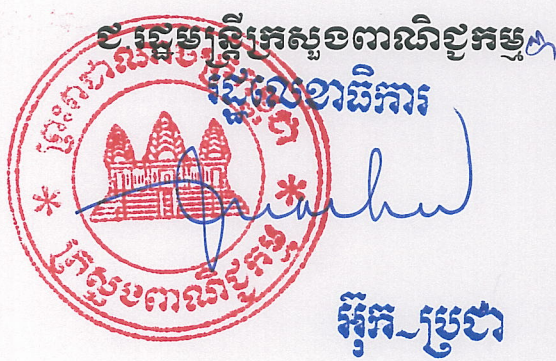 ជ.រដ្ឋមន្ត្រីក្រសួងពាណិជ្ជកម្ម
រដ្ឋលេខាធិការ
ព្រះរាជាណាចក្រកម្ពុជា
* ក្រសួងពាណិជ្ជកម្ម *
អ៊ុក-ប្រជា